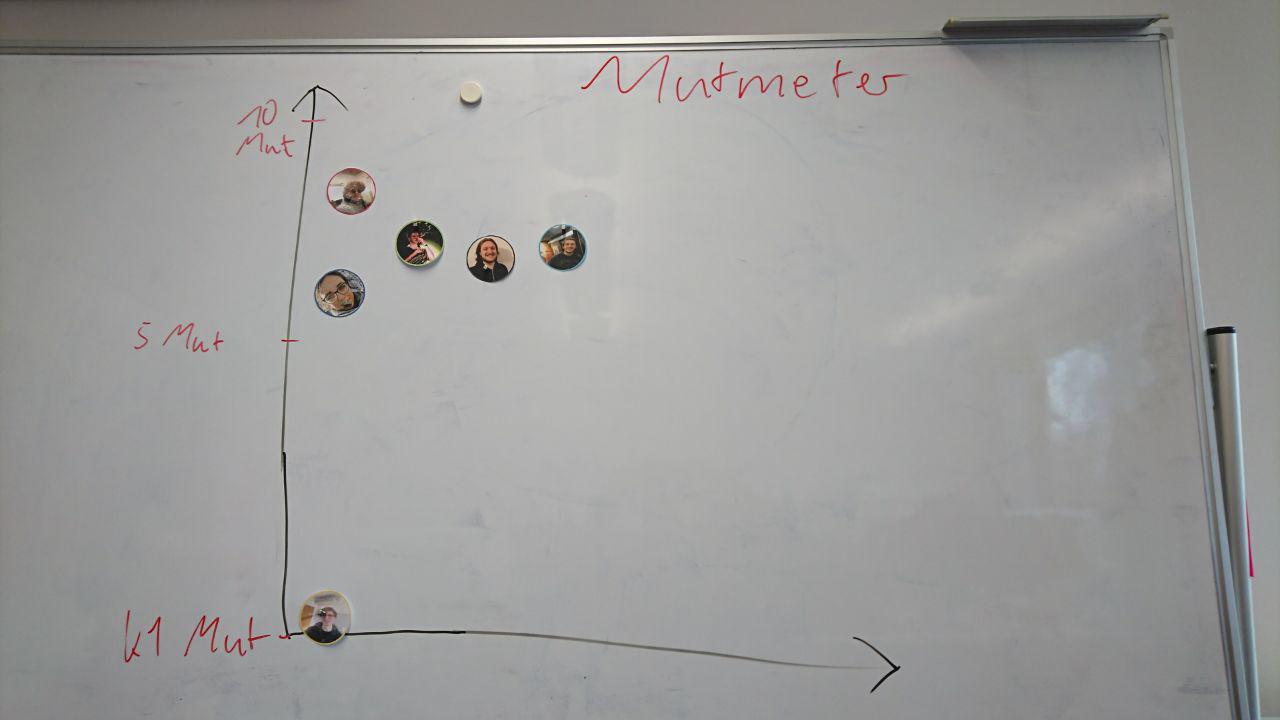 Mutmeter
10
Mut
5 Mut
k1 Mut